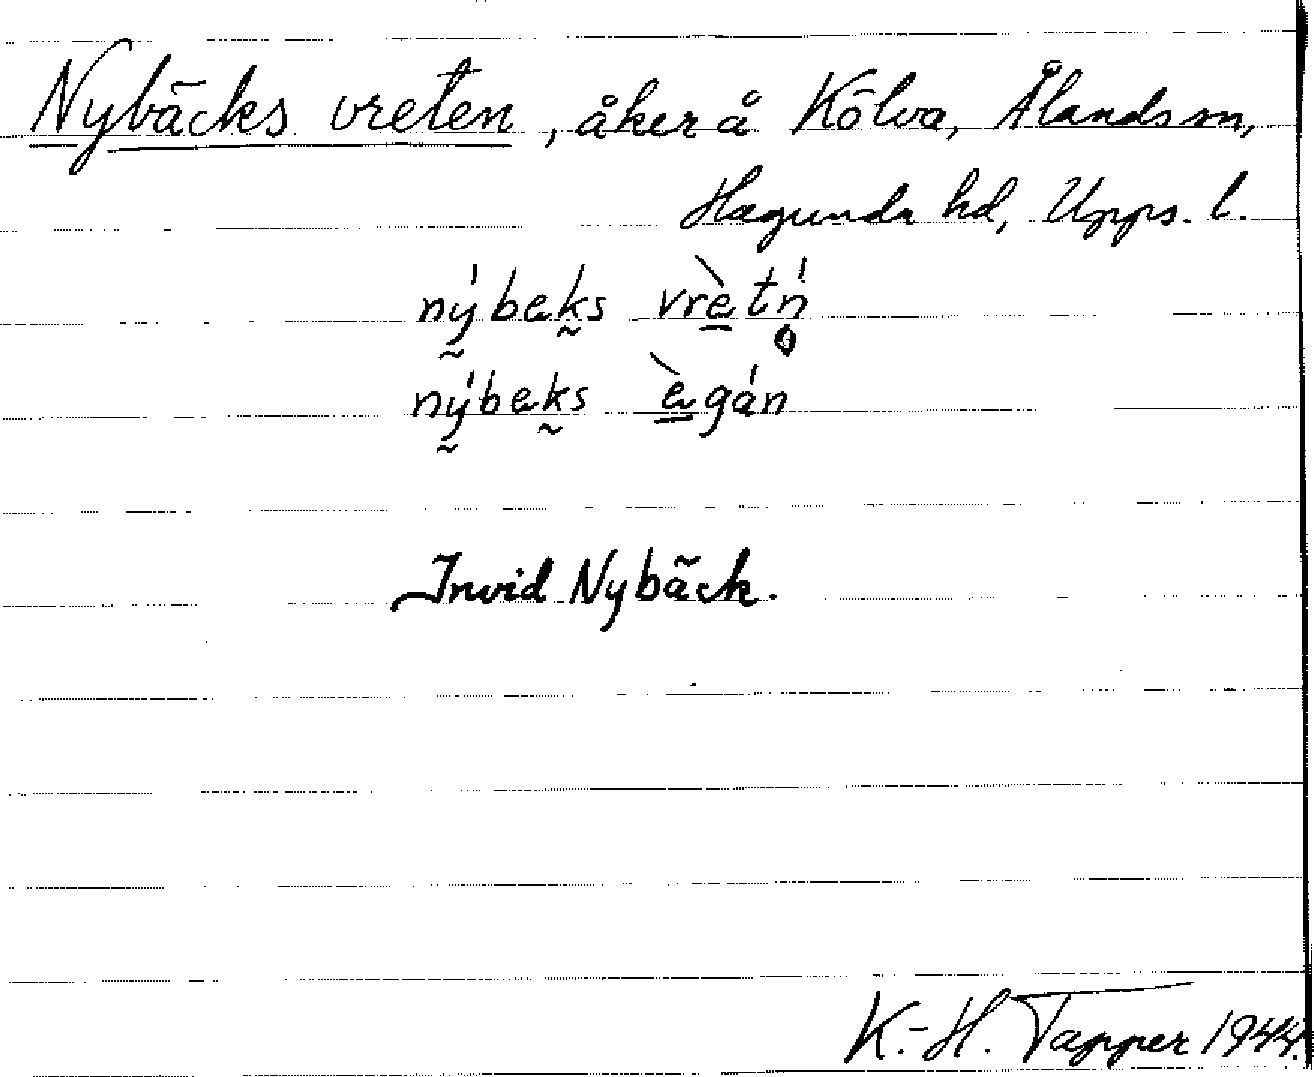 Nybäcks vreten, åker å Kölva, Ålands sn,
Hagunda hd, Upps. l.
nýbeks vrètń̥
nýbeks ègán
Invid Nybäck.
K.-H. Tapper 1944.